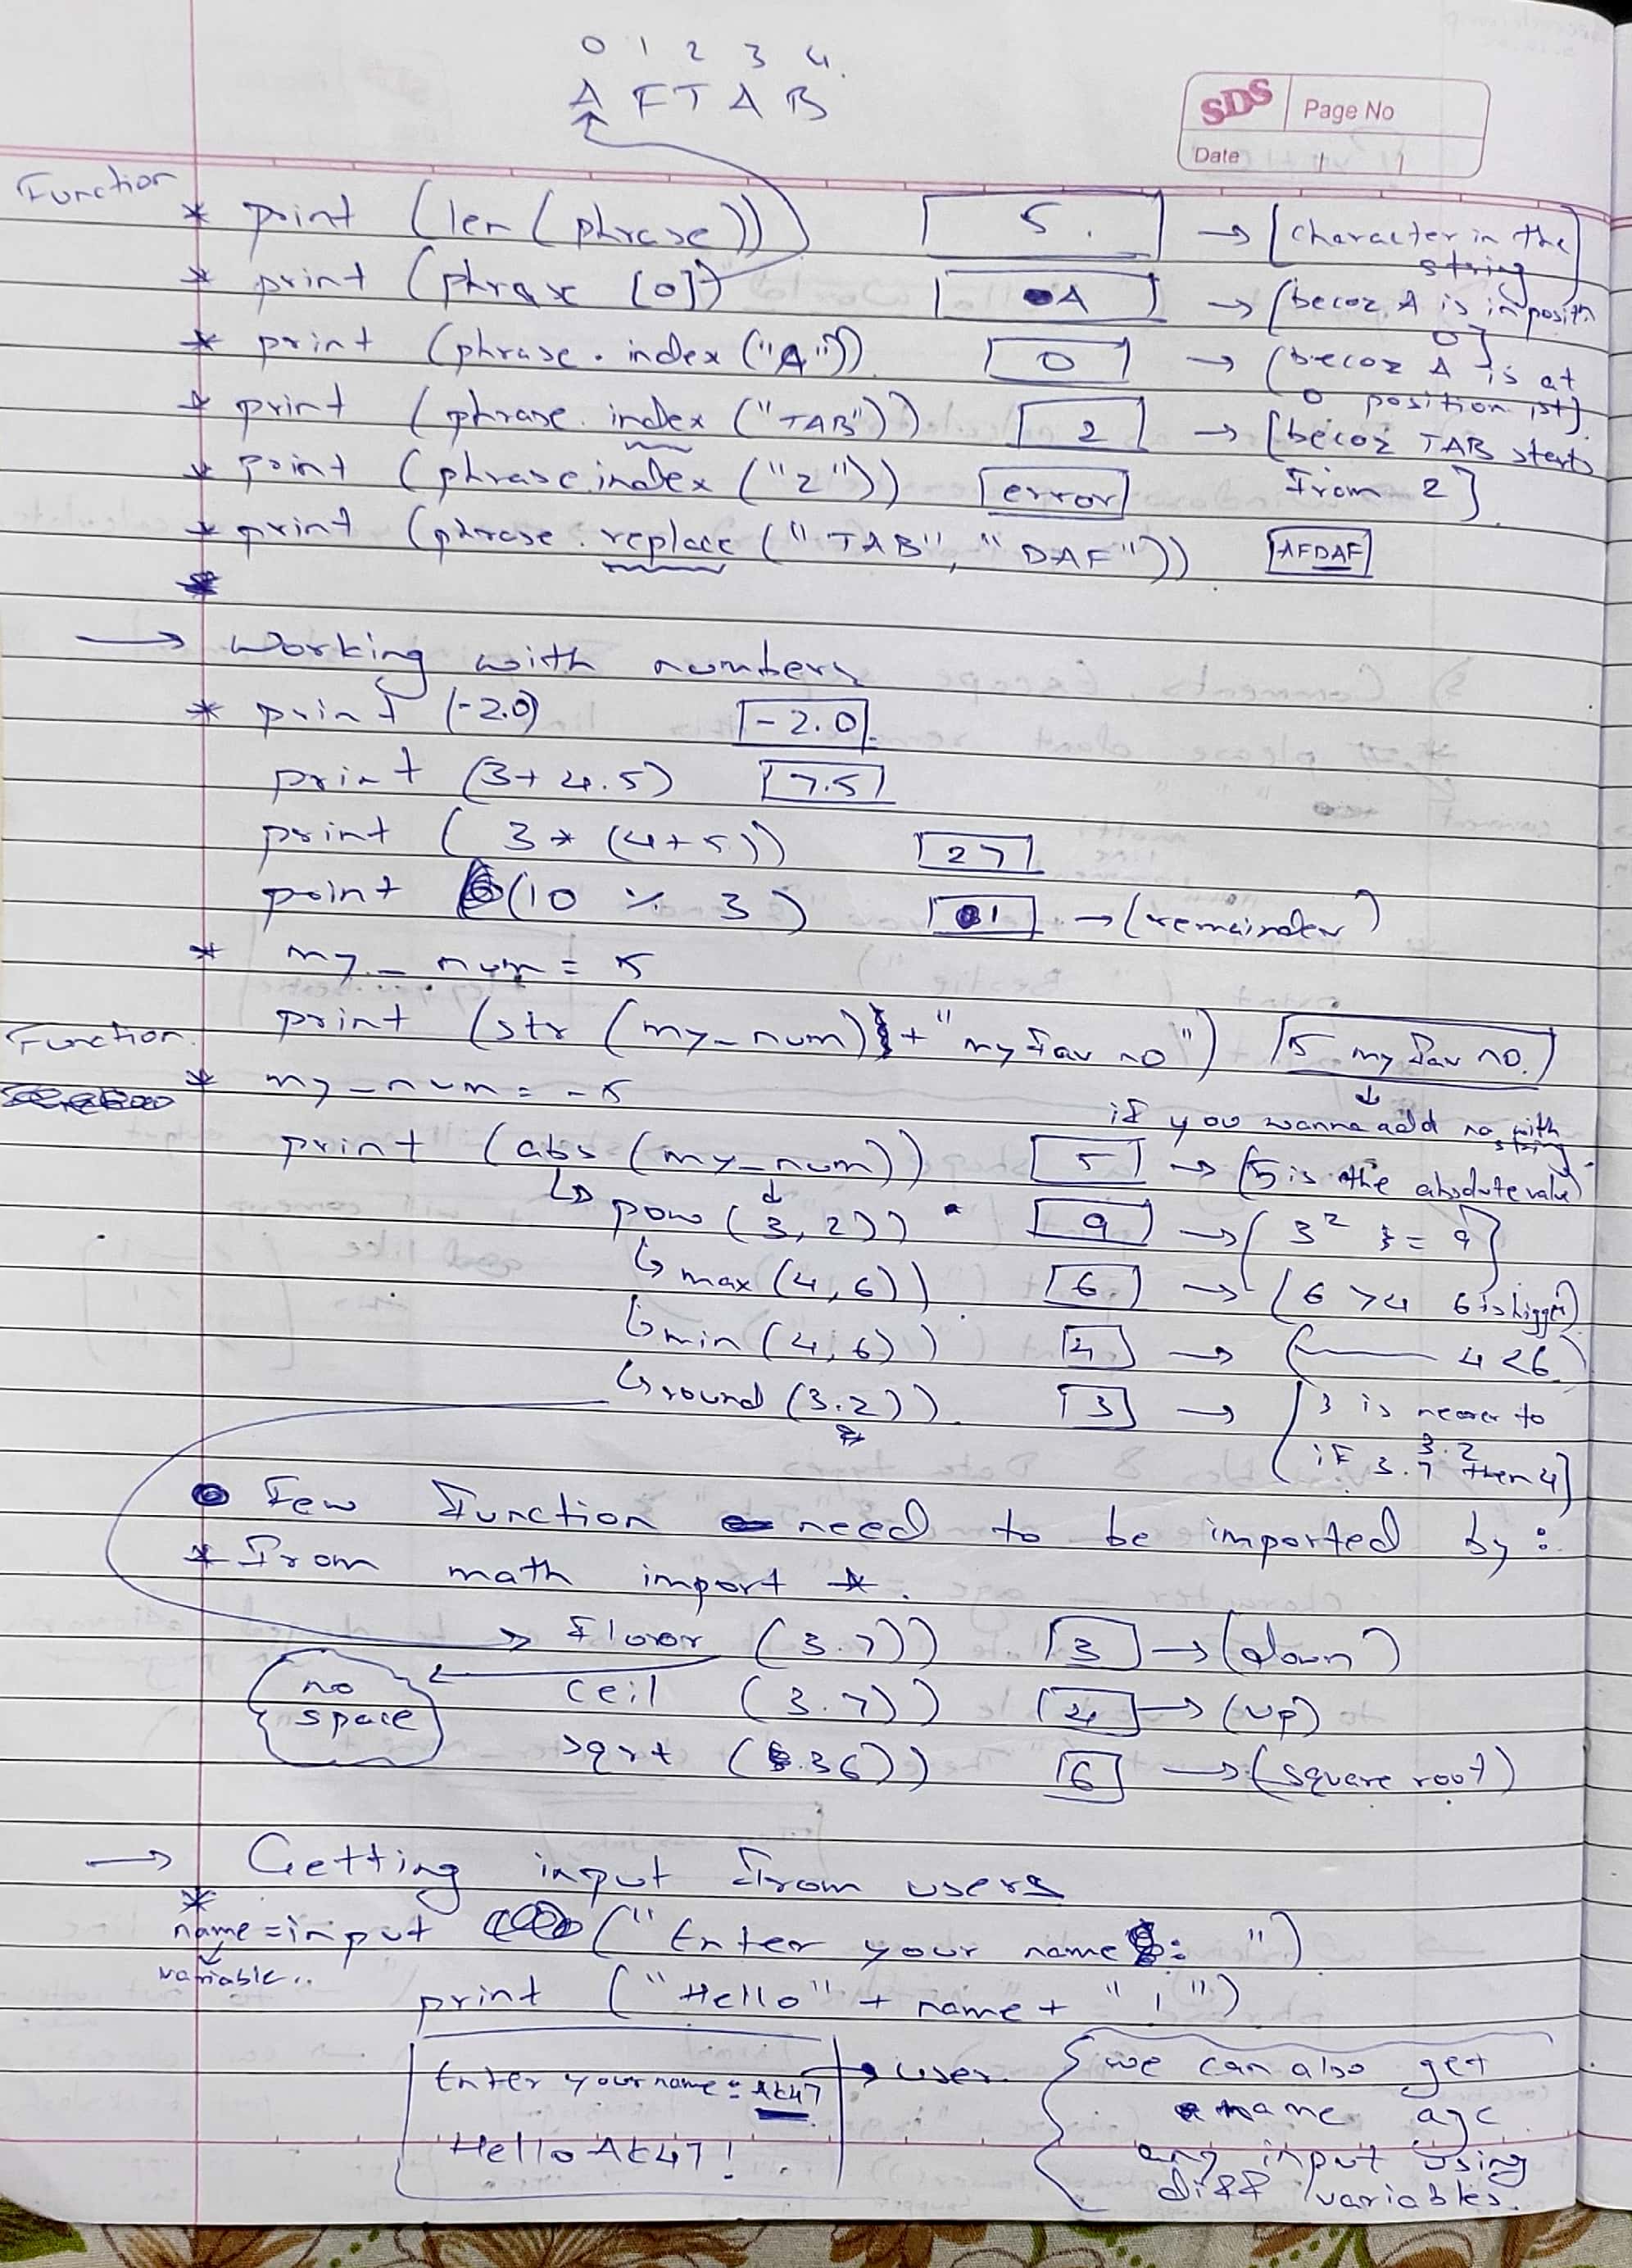 0 1 2 3 4.
A F T A B
SDS Page No
Date
Function
* print (len (phrase)) 5. → [character in the string]
* print (phrase [0]) A → [becoz A is in positn 0]
* print (phrase . index ("A")) 0 → (becoz A is at 0 position ist]
* print (phrase. index ("TAB")) 2 → [becoz TAB starts from 2]
* print (phrase.index ("z")) error
* print (phrase . replace ("TAB", "DAF")) AFDAF
→ Working with numbers
* print (-2.0) -2.0
print (3+4.5) 7.5
print ( 3 * (4+5)) 27
print (10 % 3) 1 → (remainder)
* my_num = 5
Function.
print (str (my_num) + "my fav no") 5 my fav no.
* my_num = -5
↓
if you wanna add no with string
print (abs (my_num)) 5 → (5 is the absolute value)
↳ pow (3, 2)) 9 → [ 3² = 9]
↳ max (4, 6)) 6 → (6 > 4 6 is bigger)
↳ min (4, 6)) 4 → ( 4 < 6)
↳ round (3.2)) 3 → [3 is nearer to 3.2
if 3.7 then 4]
Few function need to be imported by :
* From math import *.
→ floor (3.7)) 3 → (down)
no space
ceil (3.7)) 4 → (up)
sqrt (36)) 6 → (square root)
→ Getting input from users
*
name = input ("Enter your name : ")
variable..
print ("Hello" + name + " ! ")
Enter your name : AK47 → user
Hello AK47 !
{ we can also get
name age
any input using
diff variables.